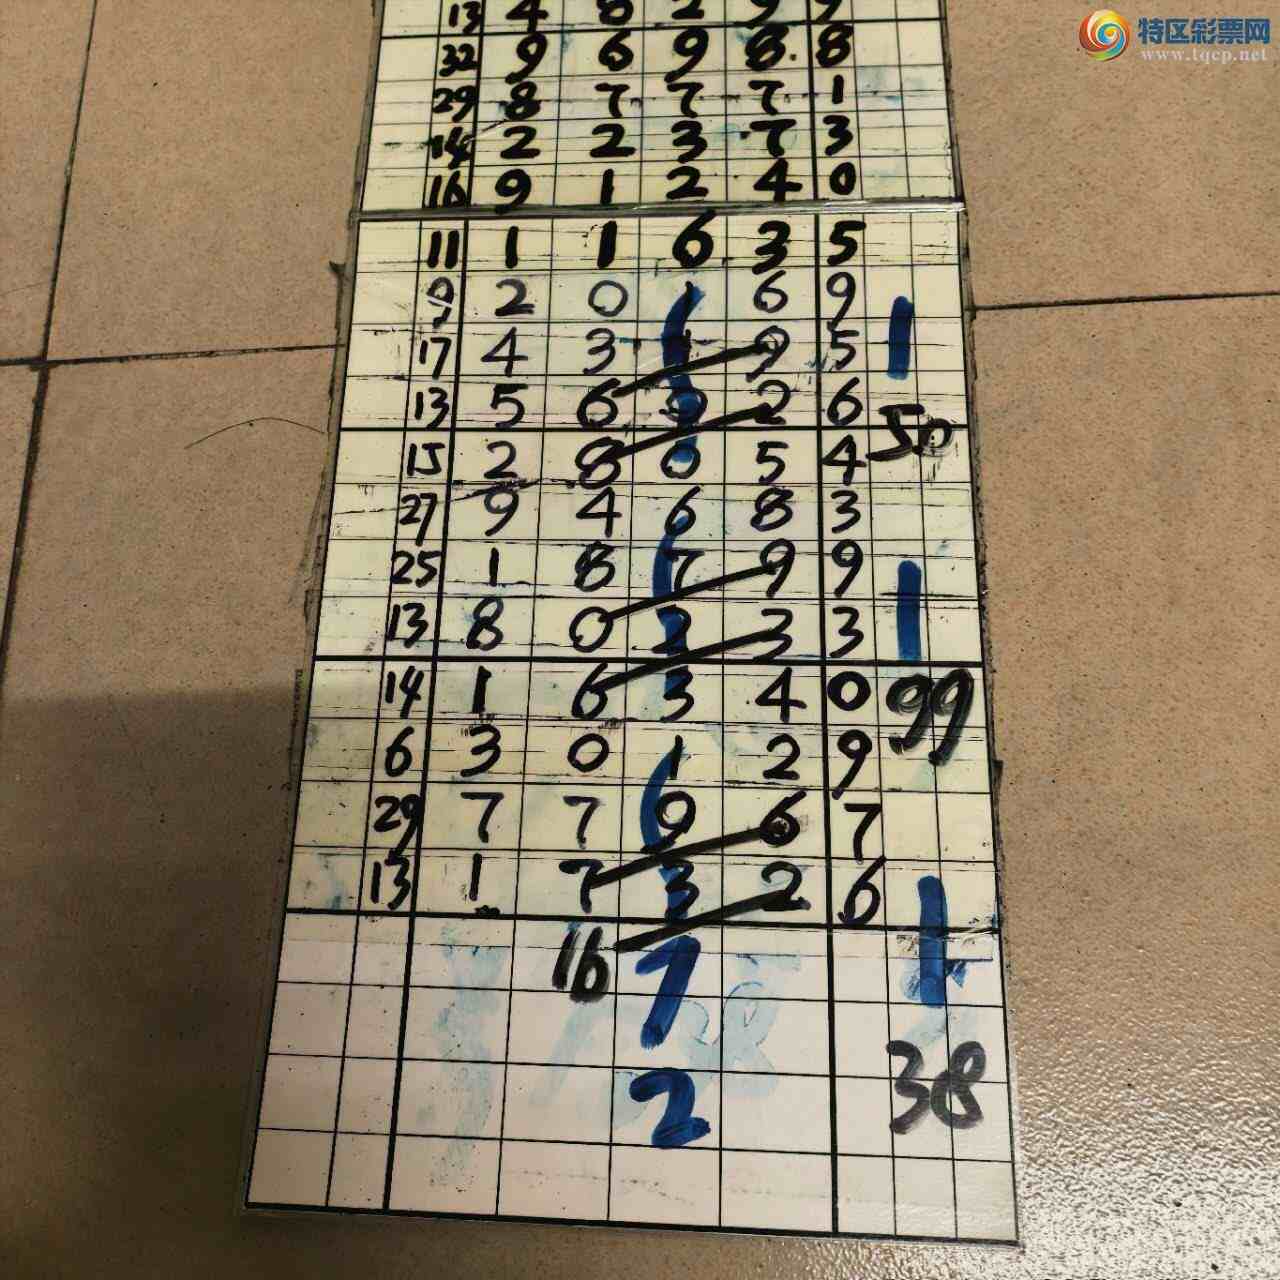 特区彩票网
www.tqcp.net
13 4 8 2 9 9
32 9 6 9 8. 8
29 8 7 7 7 1
14 2 2 3 7 3
16 9 1 2 4 0
11 1 1 6 3 5
9 2 0 1 6 9
17 4 3 1 9 5 1
13 5 6 0 2 6
15 2 8 0 5 4 50
27 9 4 6 8 3
25 1 8 7 9 9
13 8 0 2 3 3 1
14 1 6 3 4 0 99
6 3 0 1 2 9
29 7 7 9 6 7
13 1 7 3 2 6
16 7 1
2 38